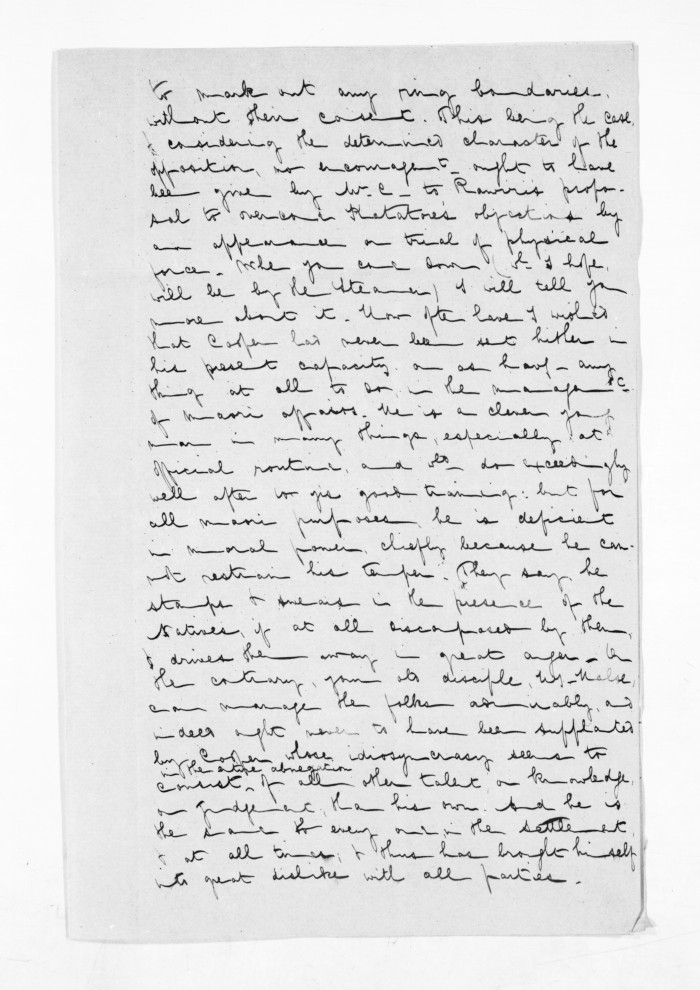 to mark out any ring boundaries,
without their consent. This being the case,
& considering the determined character of the
opposition, no encouragemt. ought to have
been given by Mr. C. to Rawiri's propo-
sal to overcome Katatore's objections by
an appearance or trial of physical
force. When you come down (wh. I hope
will be by the Steamer) I will tell you
more about it. How often have I wished
that Cooper had never been sent hither in
his present capacity, or as havg. any
thing at all to do, in the managemt. &c.
of maori affairs. He is a clever young
man in many things, especially at
official routine, and wd. do exceedingly
well after 20 yrs good training: but for
all maori purposes, he is deficient
in moral power, chiefly because he can-
not restrain his temper. They say, he
stamps & swears in the presence of the
Natives, if at all discomposed by them,
& drives them away in great anger. On
the contrary, your old disciple, Mr. Halse,
can manage the folks admirably, and
indeed ought never to have been supplanted
by Cooper whose idiosyncrasy seems to
in the entire abnegation
consist, of all other talent or knowledge,
or judgement, than his own. And he is
the same to every one in the settlement,
& at all times, & thus has brought himself
into great dislike with all parties.